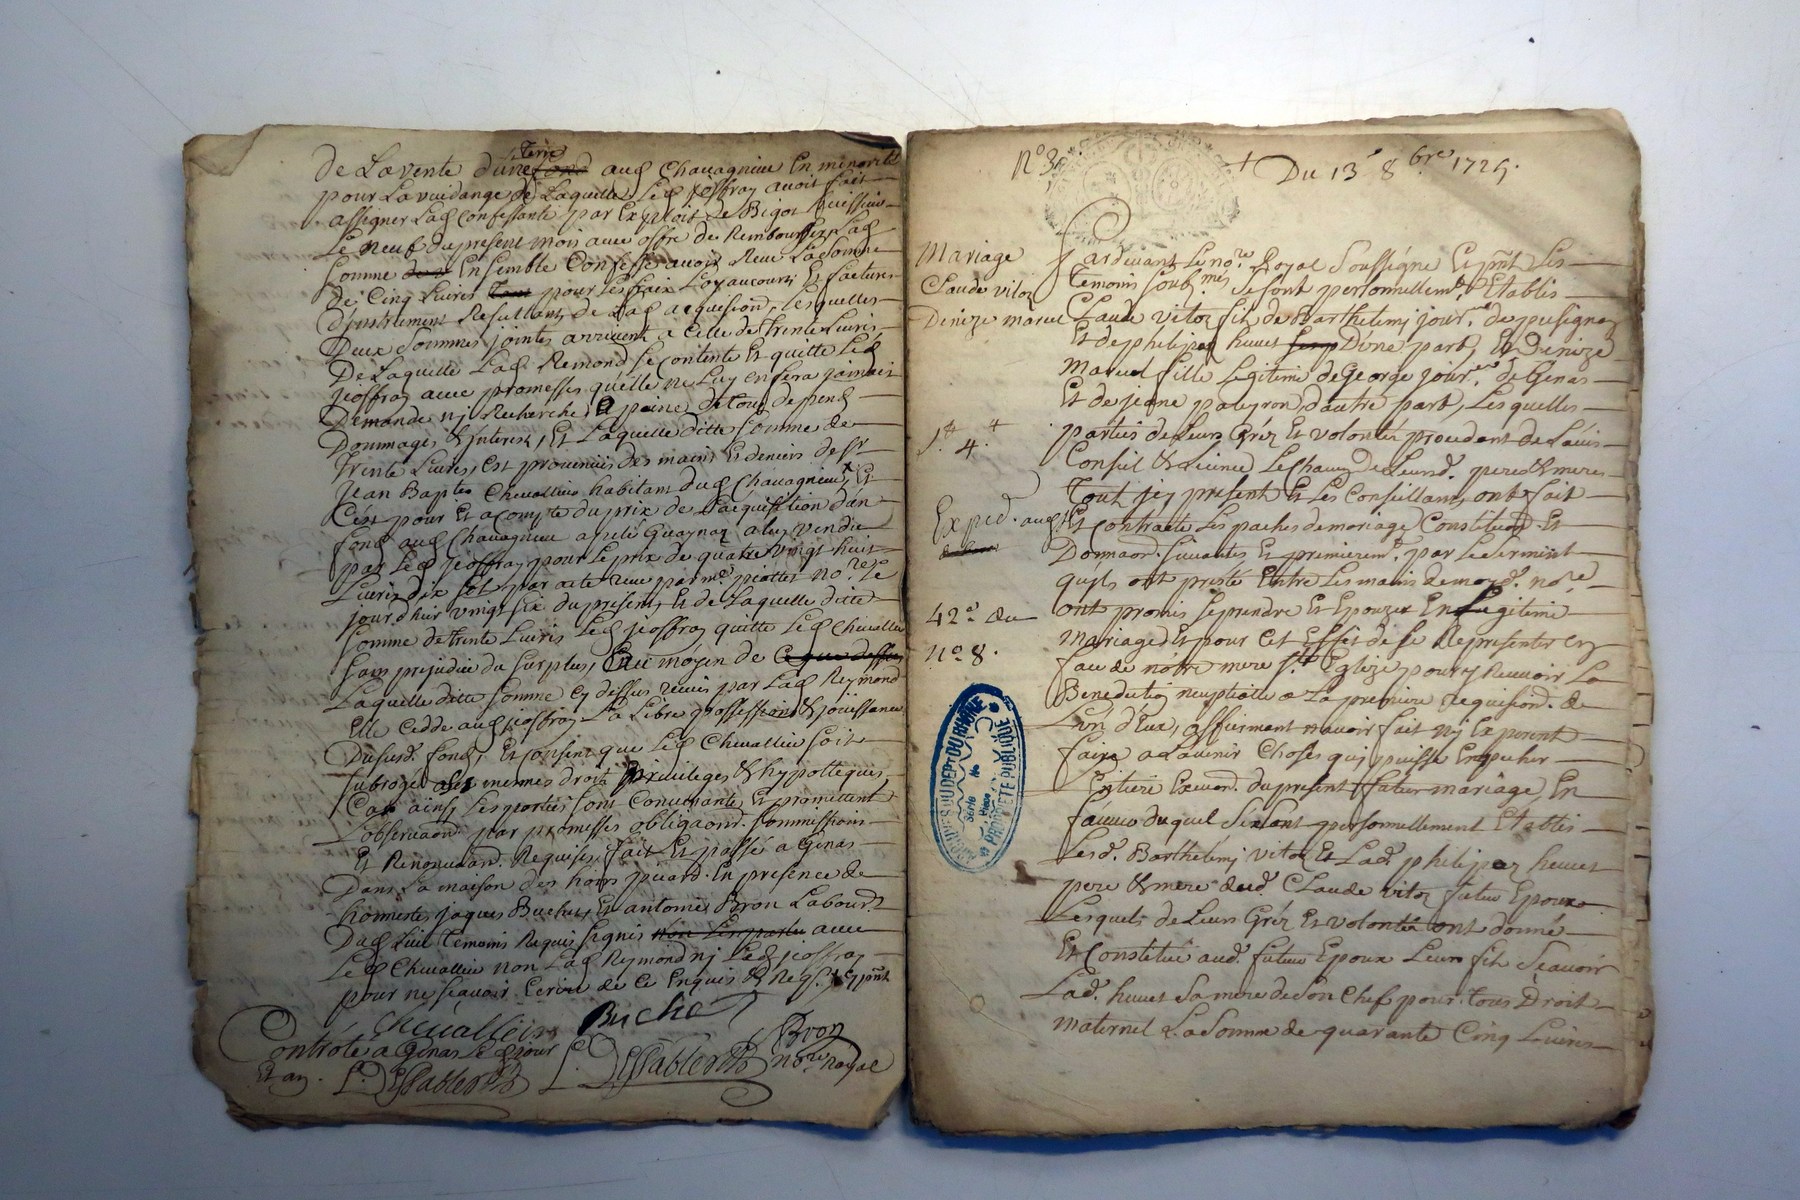 De La vente d'une terre aud Chavagnieu En minorité
pour La vuidange de Laquelle Led jeoffray avoit fait
assigner Lad Confessante par Exploit de Bigot huissier
Le neuf du present mois avec offre de Rembourser Lad
Somme Ensemble Confesse avoir Reçu La Somme
de Cinq Livres pour Les faix Loyaucourts Et factures
d'jnstrument Resultant de Lad acquision, Lesquelles
Deux Sommes jointes arrivent a Celle de trente Livres
De Laquelle Lad Remond Se Contente Et quitte Led
jeoffray avec promesses qu'elle ne Luy en fera jamais
Demande nj Recherche a peine de tous depend
Dommages & jnterest, Et Laquelle ditte Somme de
trente Livres, est provenue des mains Et deniers de sr
jean Baptes Chevallier habitant dud Chavagnieu, Et
C'est pour Et acompte du prix de L'acquisition d'un
fond aud Chavagnieu appelé Guaynaz a luy vendu
par Led jeoffray pour Le prix de quatre vingt huit
Livres dix sol par acte reçu par me piottet nore Le
jourd'huir vingt six du present, Et de Laquelle ditte
Somme de trente Livres Led jeoffray quitte Led Chevallier
Sans prejudice du Surplus, Au moyen de Ce que dessus
Laquelle ditte Somme Cy dessus reçue par Lad Reymond
Elle Cedde aud jeoffray La Libre possession & jouissance
Dususd. fond, Et Consent que Led Chevallier soit
Subrogé a ses mesmes droits privileges & hypotteques,
Car ainsy Les parties sont Convenante Et promettent
L'observaon par promesses obligaons. Soummissions
Et Renonciaons. Requises fait Et passé a Genas
Dans La maison des hoirs picard. En presence de
honnestes jaques Buchet, Et antoine Bron Labourds.
Dud Lieu temoins Requis Signés avec
Led Chevallier non Lad Reymond nj Led jeoffray
pour ne sçavoir Ecrire de Ce Enquis & Reqs.
Chevallier
Buchet
Bron
Controlé a Genas Led jour
Et an. Dessablettes
Dessablettes nore royal
No 3
+ Du 13e 8bre 1725.
Mariage
Claude vitoz
Denize marcel
1# 4.
Exped. aud
42e du
no 8.
Pardevant Le nore. Royal Soussigné Et pnt Les
temoins Soubmés Se sont personnellemt. Etablis
Claude vitoz fils de Barthelemj jourer. de pusignaz
Et de philipaz huvet D'une part, Et Denize
Marcel fille Legitime de George jourer. de Genas
Et de jeane pateyron, d'autre part, Lesquelles
parties de Leurs Gréz Et volontéz procedant de L'avis
Conseil & Licence Le Chacun de Leursd. peres & meres
Tout jcy present Et Les Conseillant, ont fait
Et Contracté Les paches de mariage Constituon. Et
Donnaon. Suivantes Et premieremt. par Le serment
qu'jls ont presté Entre Les mains de moyd. nore.
ont promis Se prendre Et Epouzer En Legitime
mariage Et pour Cet Effet de se Representer En
face de nôtre mere Ste Eglize pour y Recevoir La
Benediction nuptialle a La premiere requision. de
L'un d'Eux, affirmant n'avoir fait nj Ex perent
faire a L'avenir Choses quj puisse Empecher
L'entiere Execuon. du present futur mariage, En
faveur duquel Se sont personnellement Etablis
Lesd. Barthélémj vitoz Et Lad. philipaz huvet
pere & mere dud. Claude vitoz futur Epoux
Lesquels de Leurs Gréz Et volontéz ont donné
Et Constitué aud. futur Epoux Leur fils Sçavoir
Lad. huvet Sa mere de Son Chef pour tous Droits
maternel La Somme de quarante Cinq Livres
ARCHIVES DU DEPT DU RHONE
PROPRIÉTÉ PUBLIQUE